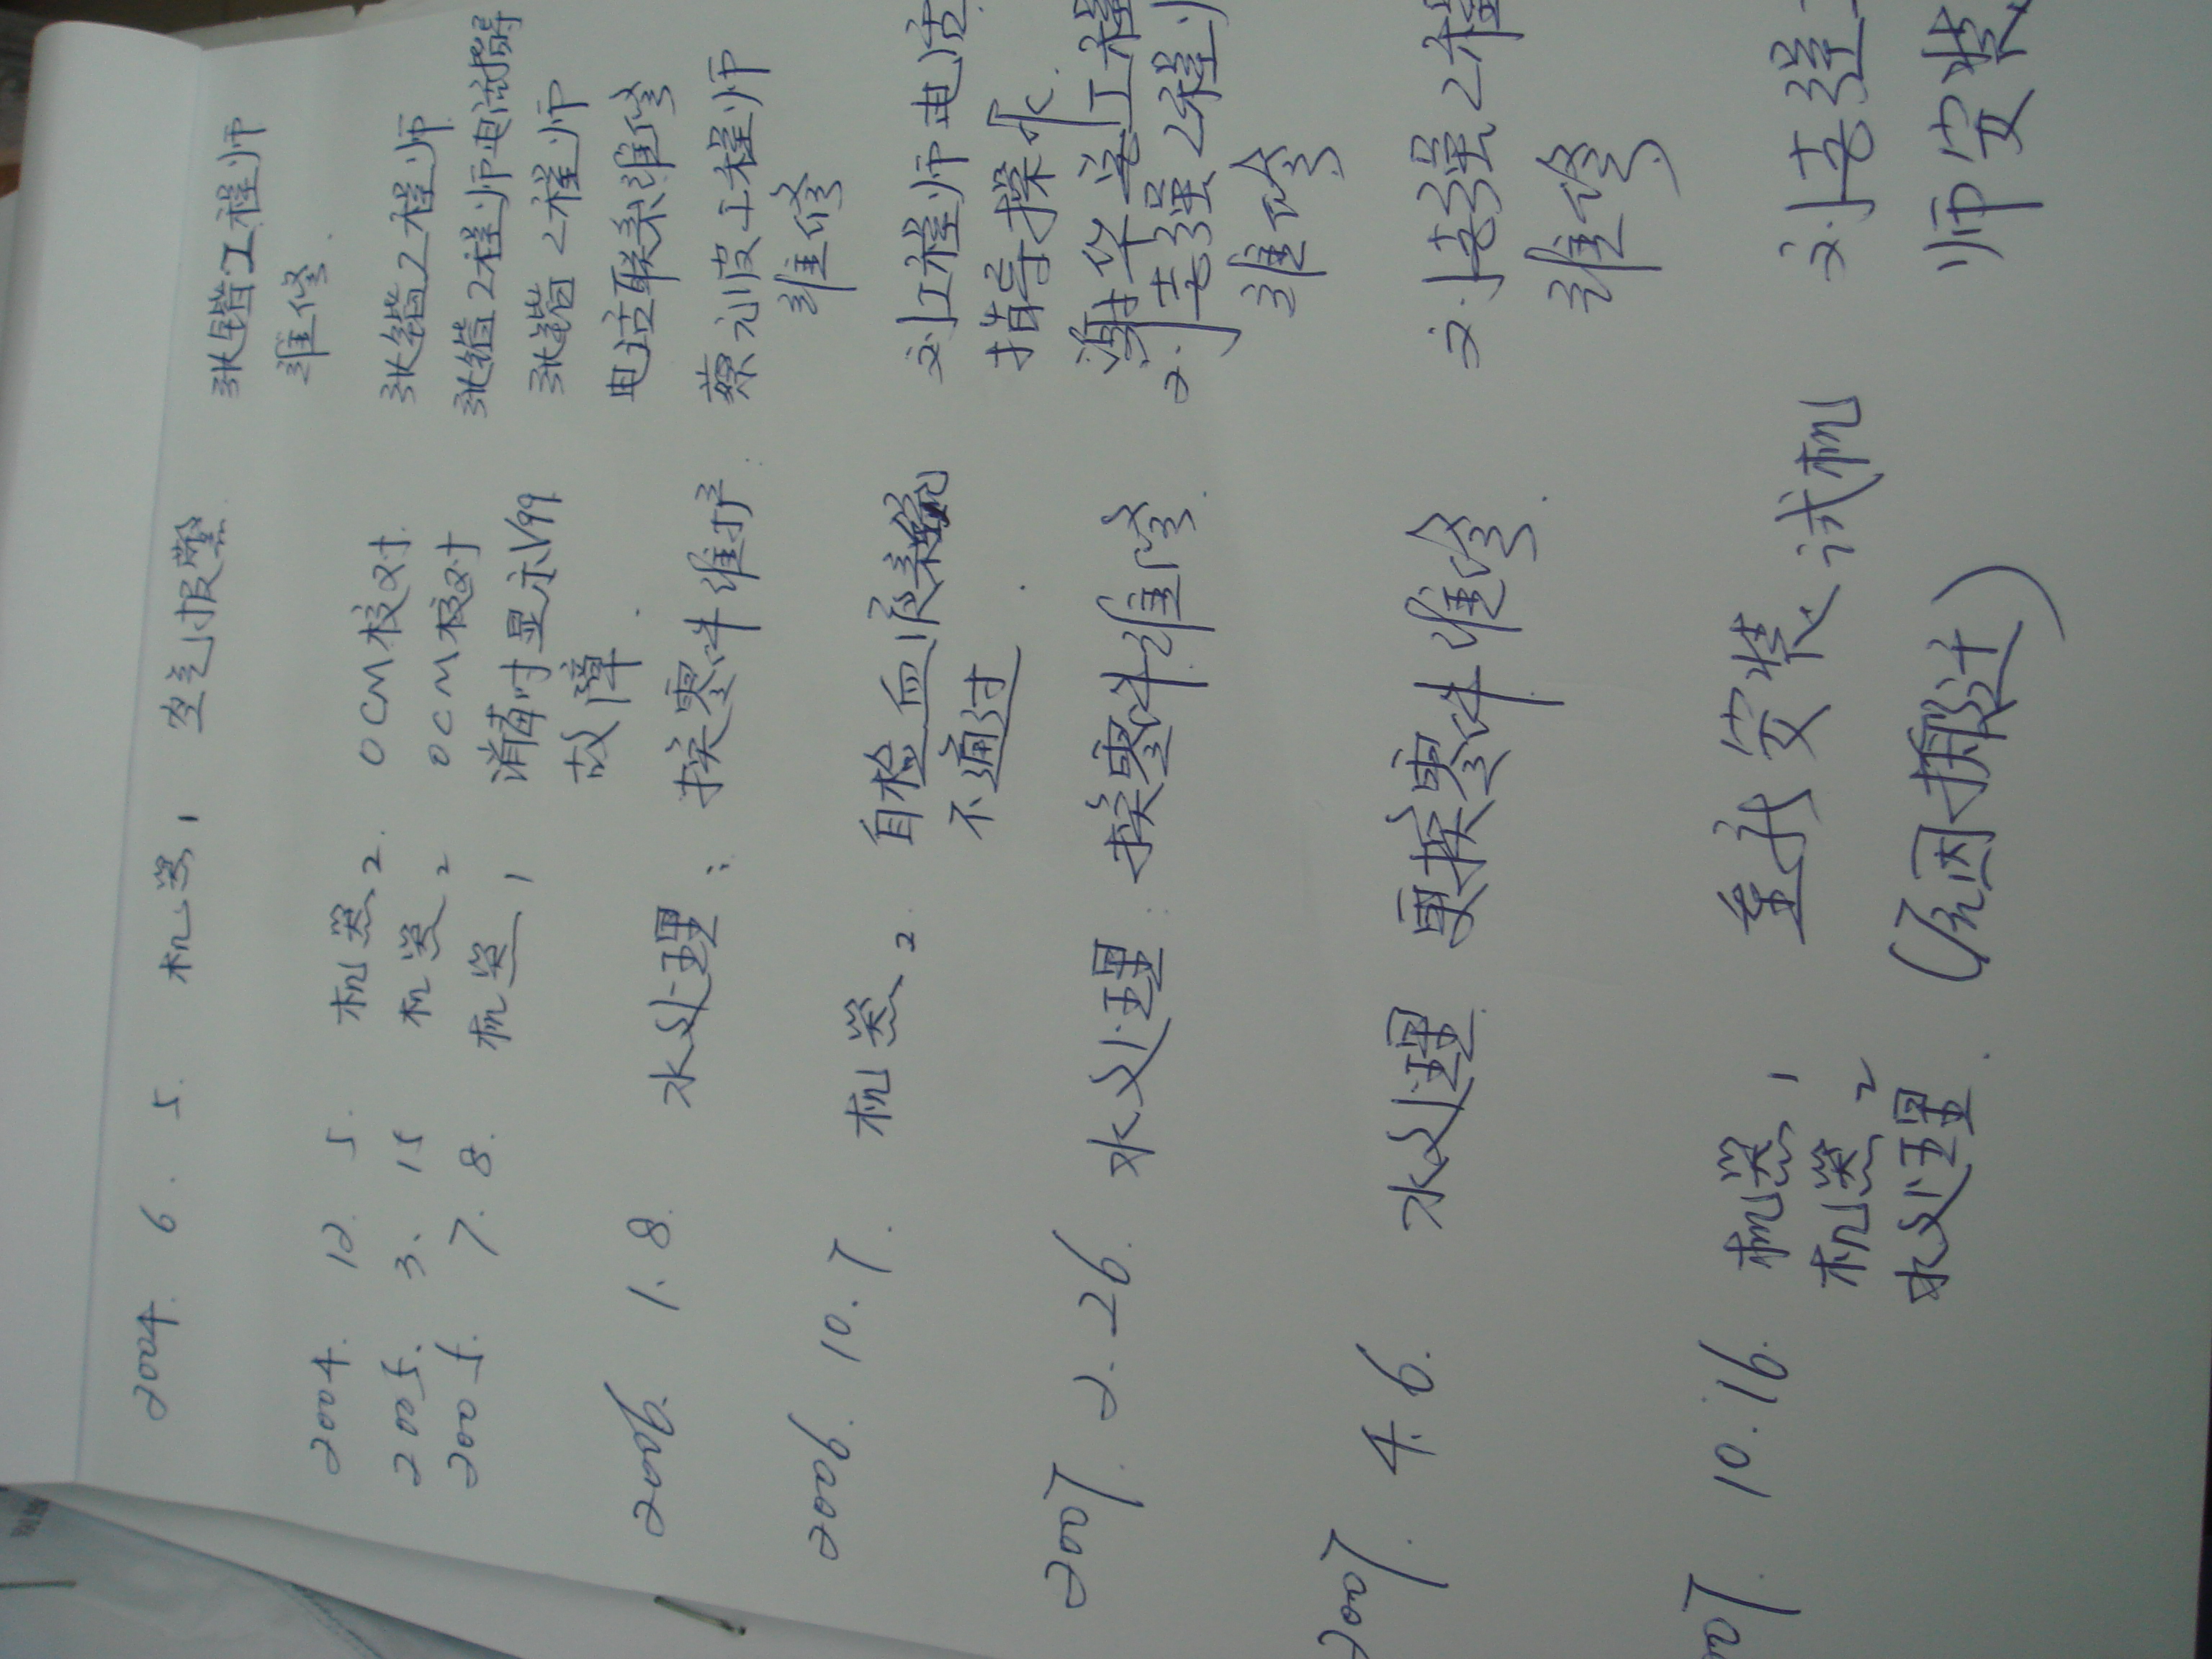 2004. 6. 5. 机器1 空气报警 张锴工程师
维修.
2004. 12. 5. 机器2. OCM校对 张锴工程师
2005. 3. 15 机器2 OCM校对 张锴工程师电话
2005. 7. 8. 机器1 消毒时显示V99 张锴工程师
故障. 电话联系维修
2006. 1. 8. 水处理: 换零件维护. 蔡永波工程师
维修
2006. 10. 7. 机器2. 自检血液系统 刘工程师电话
不通过. 指导操作.
2007. 2. 26. 水处理: 换零件维修. 谢华 工程
刘志强工程师
维修
2007. 4. 6. 水处理 更换零件维修. 刘志强工程
维修
2007. 10. 16. 机器1 重新安装、试机 刘志强工
机器2 (原因搬迁) 师安装
水处理.